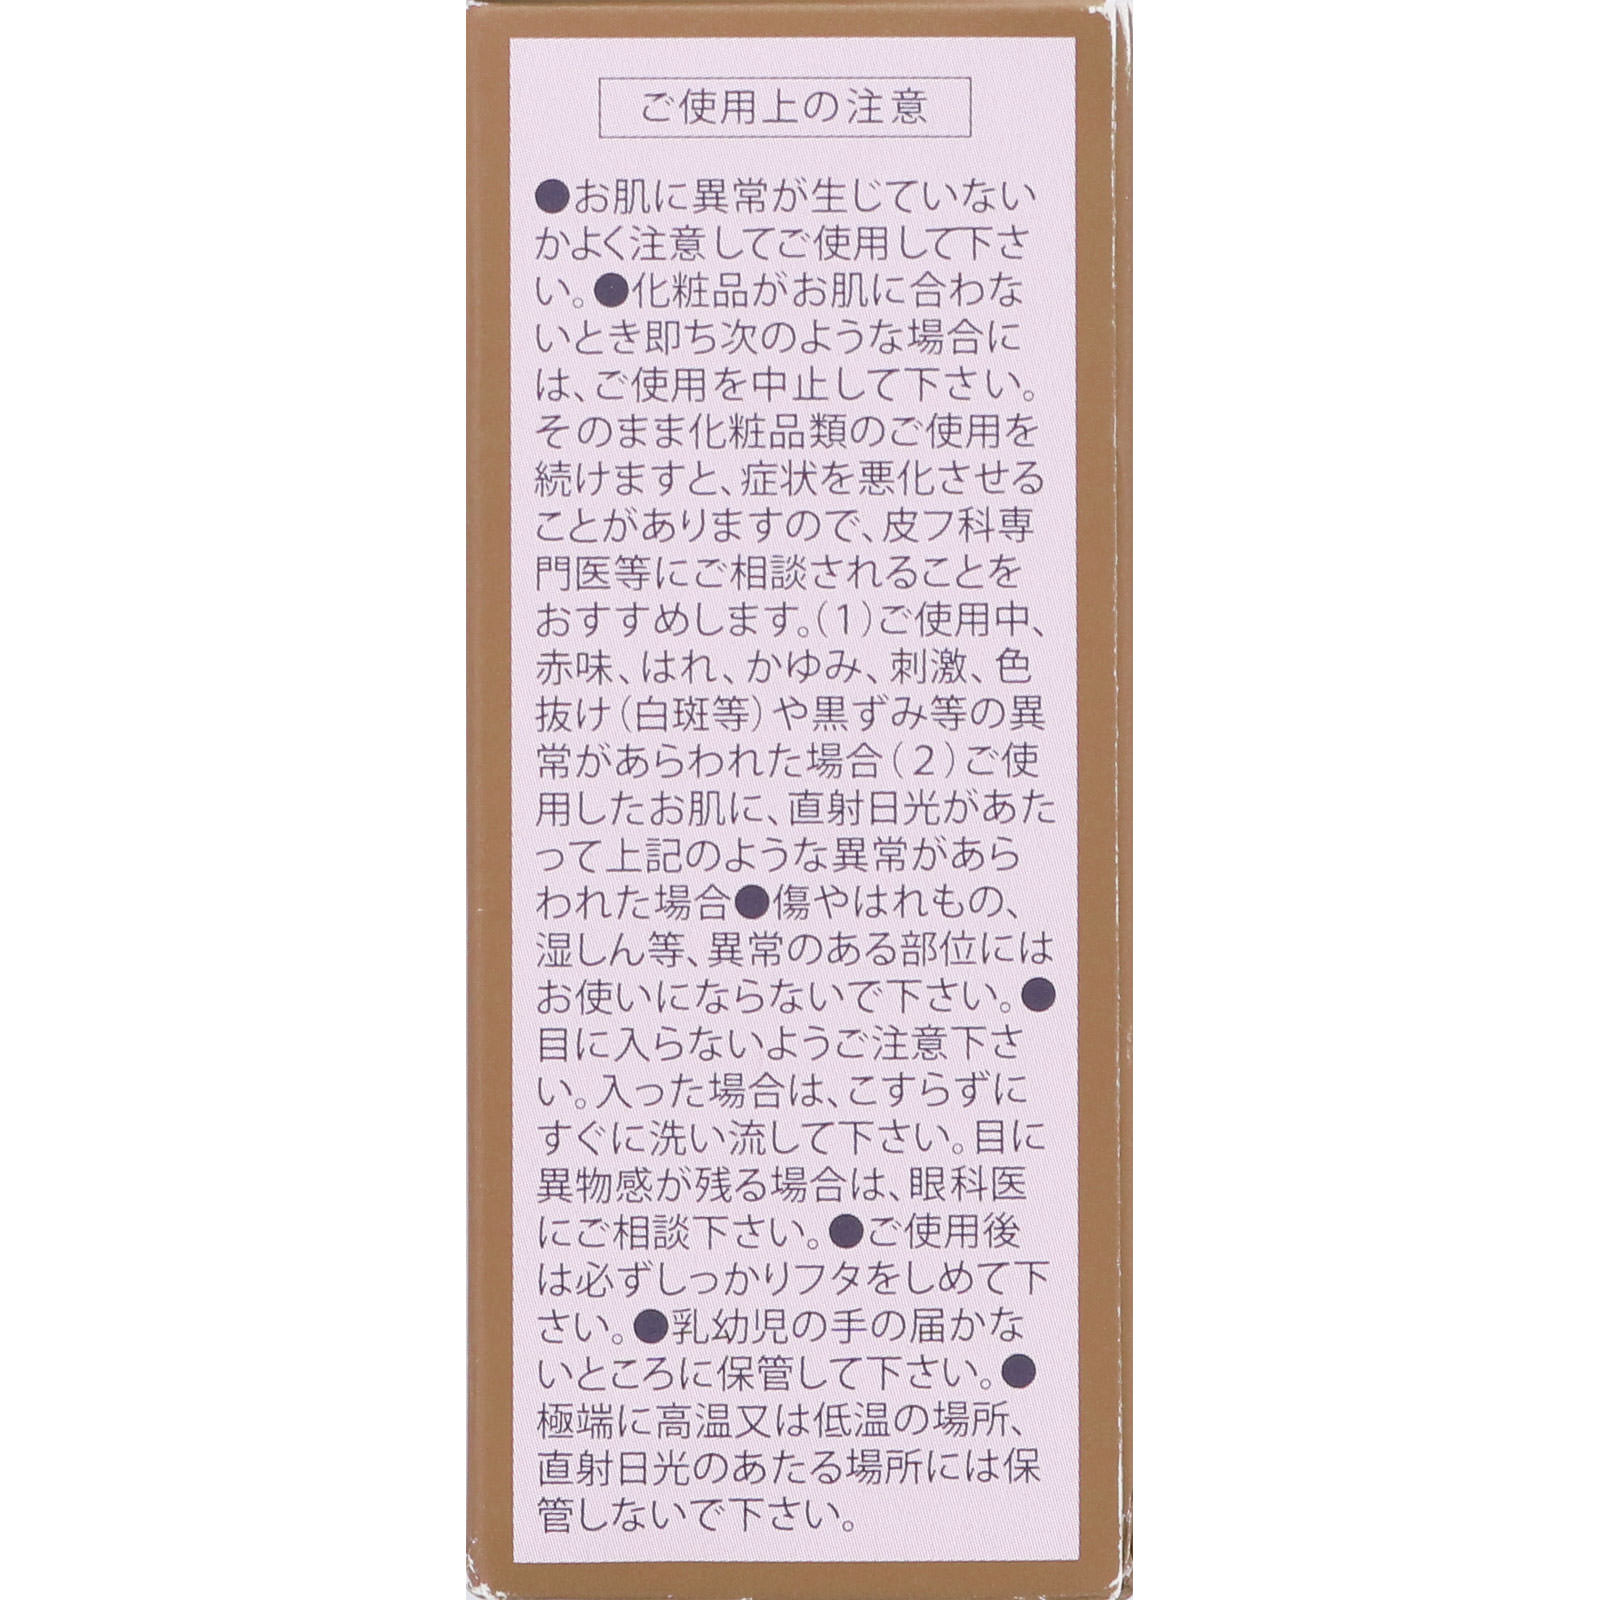 ご使用上の注意
●お肌に異常が生じていない
かよく注意してご使用して下さ
い。●化粧品がお肌に合わな
いとき即ち次のような場合に
は、ご使用を中止して下さい。
そのまま化粧品類のご使用を
続けますと、症状を悪化させる
ことがありますので、皮フ科専
門医等にご相談されることを
おすすめします。(1)ご使用中、
赤味、はれ、かゆみ、刺激、色
抜け(白斑等)や黒ずみ等の異
常があらわれた場合(2)ご使
用したお肌に、直射日光があた
って上記のような異常があら
われた場合●傷やはれもの、
湿しん等、異常のある部位には
お使いにならないで下さい。●
目に入らないようご注意下さ
い。入った場合は、こすらずに
すぐに洗い流して下さい。目に
異物感が残る場合は、眼科医
にご相談下さい。●ご使用後
は必ずしっかりフタをしめて下
さい。●乳幼児の手の届かな
いところに保管して下さい。●
極端に高温又は低温の場所、
直射日光のあたる場所には保
管しないで下さい。